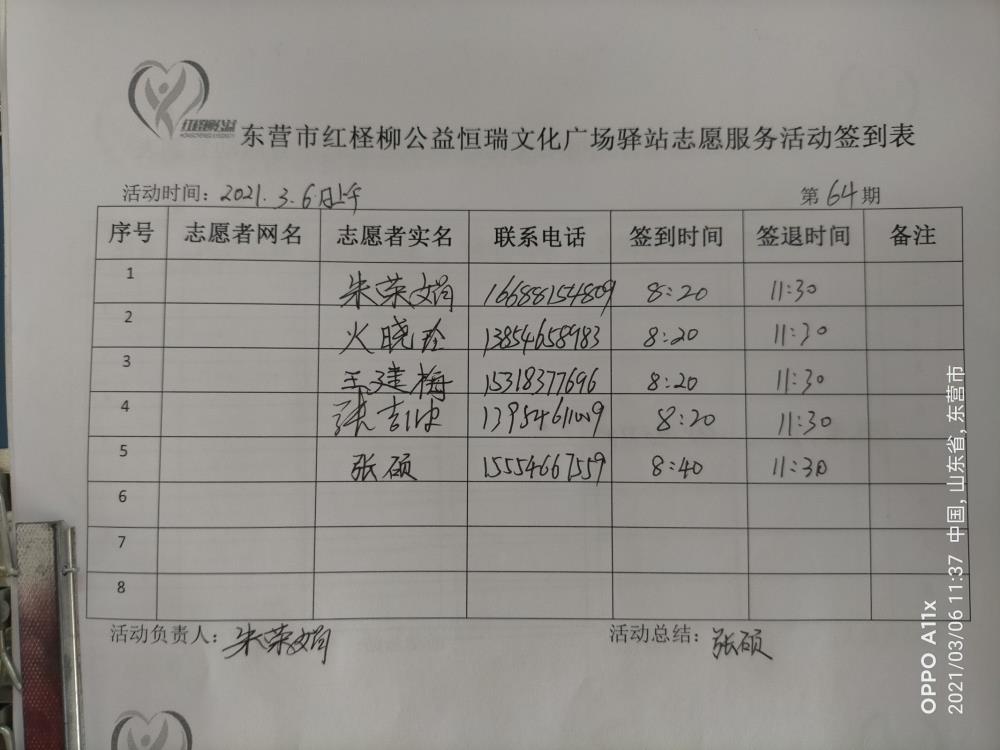 红柽柳公益
东营市红柽柳公益恒瑞文化广场驿站志愿服务活动签到表
活动时间：2021.3.6日上午 第64期
序号 志愿者网名 志愿者实名 联系电话 签到时间 签退时间 备注
1 朱荣娟 16688154809 8:20 11:30
2 火晓玲 13854658983 8:20 11:30
3 王建梅 15318377696 8:20 11:30
4 张吉忠 13954611009 8:20 11:30
5 张硕 15554667559 8:40 11:30
6
7
8
活动负责人：朱荣娟 活动总结：张硕
OPPO A11x
2021/03/06 11:37 中国, 山东省, 东营市